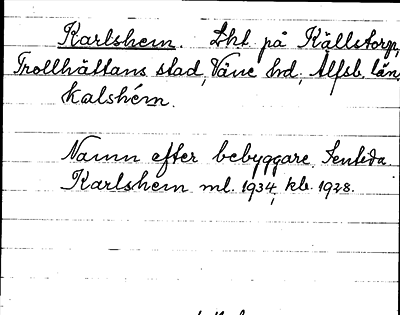 Karlshem. Lht på Källstorp,
Trollhättans stad, Väne hd, Älfsb. län.
Kalshém.
Namn efter bebyggare.
Karlshem ml. 1934, kb. 1928.